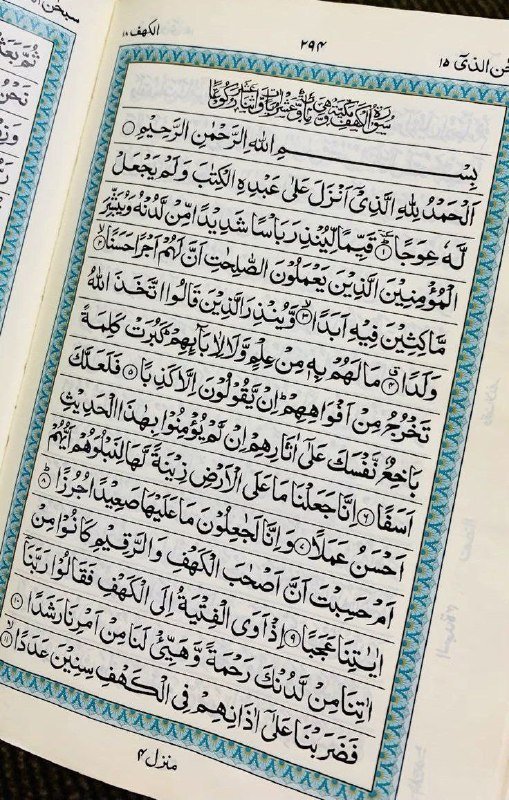 سبحن الذي ١٥
٢٩٤
الكهف ١٨
سورة الكهف مكية وهى مائة وعشر اية واثنا عشر ركوعا
بِسْمِ اللهِ الرَّحْمٰنِ الرَّحِيْمِ
اَلْحَمْدُ لِلّٰهِ الَّذِيْٓ اَنْزَلَ عَلٰى عَبْدِهِ الْكِتٰبَ وَلَمْ يَجْعَلْ
لَّهٗ عِوَجًا ؕ۝۱ قَيِّمًا لِّيُنْذِرَ بَاْسًا شَدِيْدًا مِّنْ لَّدُنْهُ وَيُبَشِّرَ
الْمُؤْمِنِيْنَ الَّذِيْنَ يَعْمَلُوْنَ الصّٰلِحٰتِ اَنَّ لَهُمْ اَجْرًا حَسَنًا ۙ۝۲
مَّاكِثِيْنَ فِيْهِ اَبَدًا ۙ۝۳ وَّيُنْذِرَ الَّذِيْنَ قَالُوا اتَّخَذَ اللّٰهُ
وَلَدًا ۗ۝۴ مَا لَهُمْ بِهٖ مِنْ عِلْمٍ وَّلَا لِاٰبَآئِهِمْ ؕ كَبُرَتْ كَلِمَةً
تَخْرُجُ مِنْ اَفْوَاهِهِمْ ؕ اِنْ يَّقُوْلُوْنَ اِلَّا كَذِبًا ۝۵ فَلَعَلَّكَ
بَاخِعٌ نَّفْسَكَ عَلٰٓى اٰثَارِهِمْ اِنْ لَّمْ يُؤْمِنُوْا بِهٰذَا الْحَدِيْثِ
اَسَفًا ۝۶ اِنَّا جَعَلْنَا مَا عَلَى الْاَرْضِ زِيْنَةً لَّهَا لِنَبْلُوَهُمْ اَيُّهُمْ
اَحْسَنُ عَمَلًا ۝۷ وَاِنَّا لَجٰعِلُوْنَ مَا عَلَيْهَا صَعِيْدًا جُرُزًا ؕ۝۸
اَمْ حَسِبْتَ اَنَّ اَصْحٰبَ الْكَهْفِ وَالرَّقِيْمِ كَانُوْا مِنْ
اٰيٰتِنَا عَجَبًا ۝۹ اِذْ اَوَى الْفِتْيَةُ اِلَى الْكَهْفِ فَقَالُوْا رَبَّنَآ
اٰتِنَا مِنْ لَّدُنْكَ رَحْمَةً وَّهَيِّئْ لَنَا مِنْ اَمْرِنَا رَشَدًا ۝۱۰
فَضَرَبْنَا عَلٰٓى اٰذَانِهِمْ فِى الْكَهْفِ سِنِيْنَ عَدَدًا ۙ۝۱۱
منزل ۴